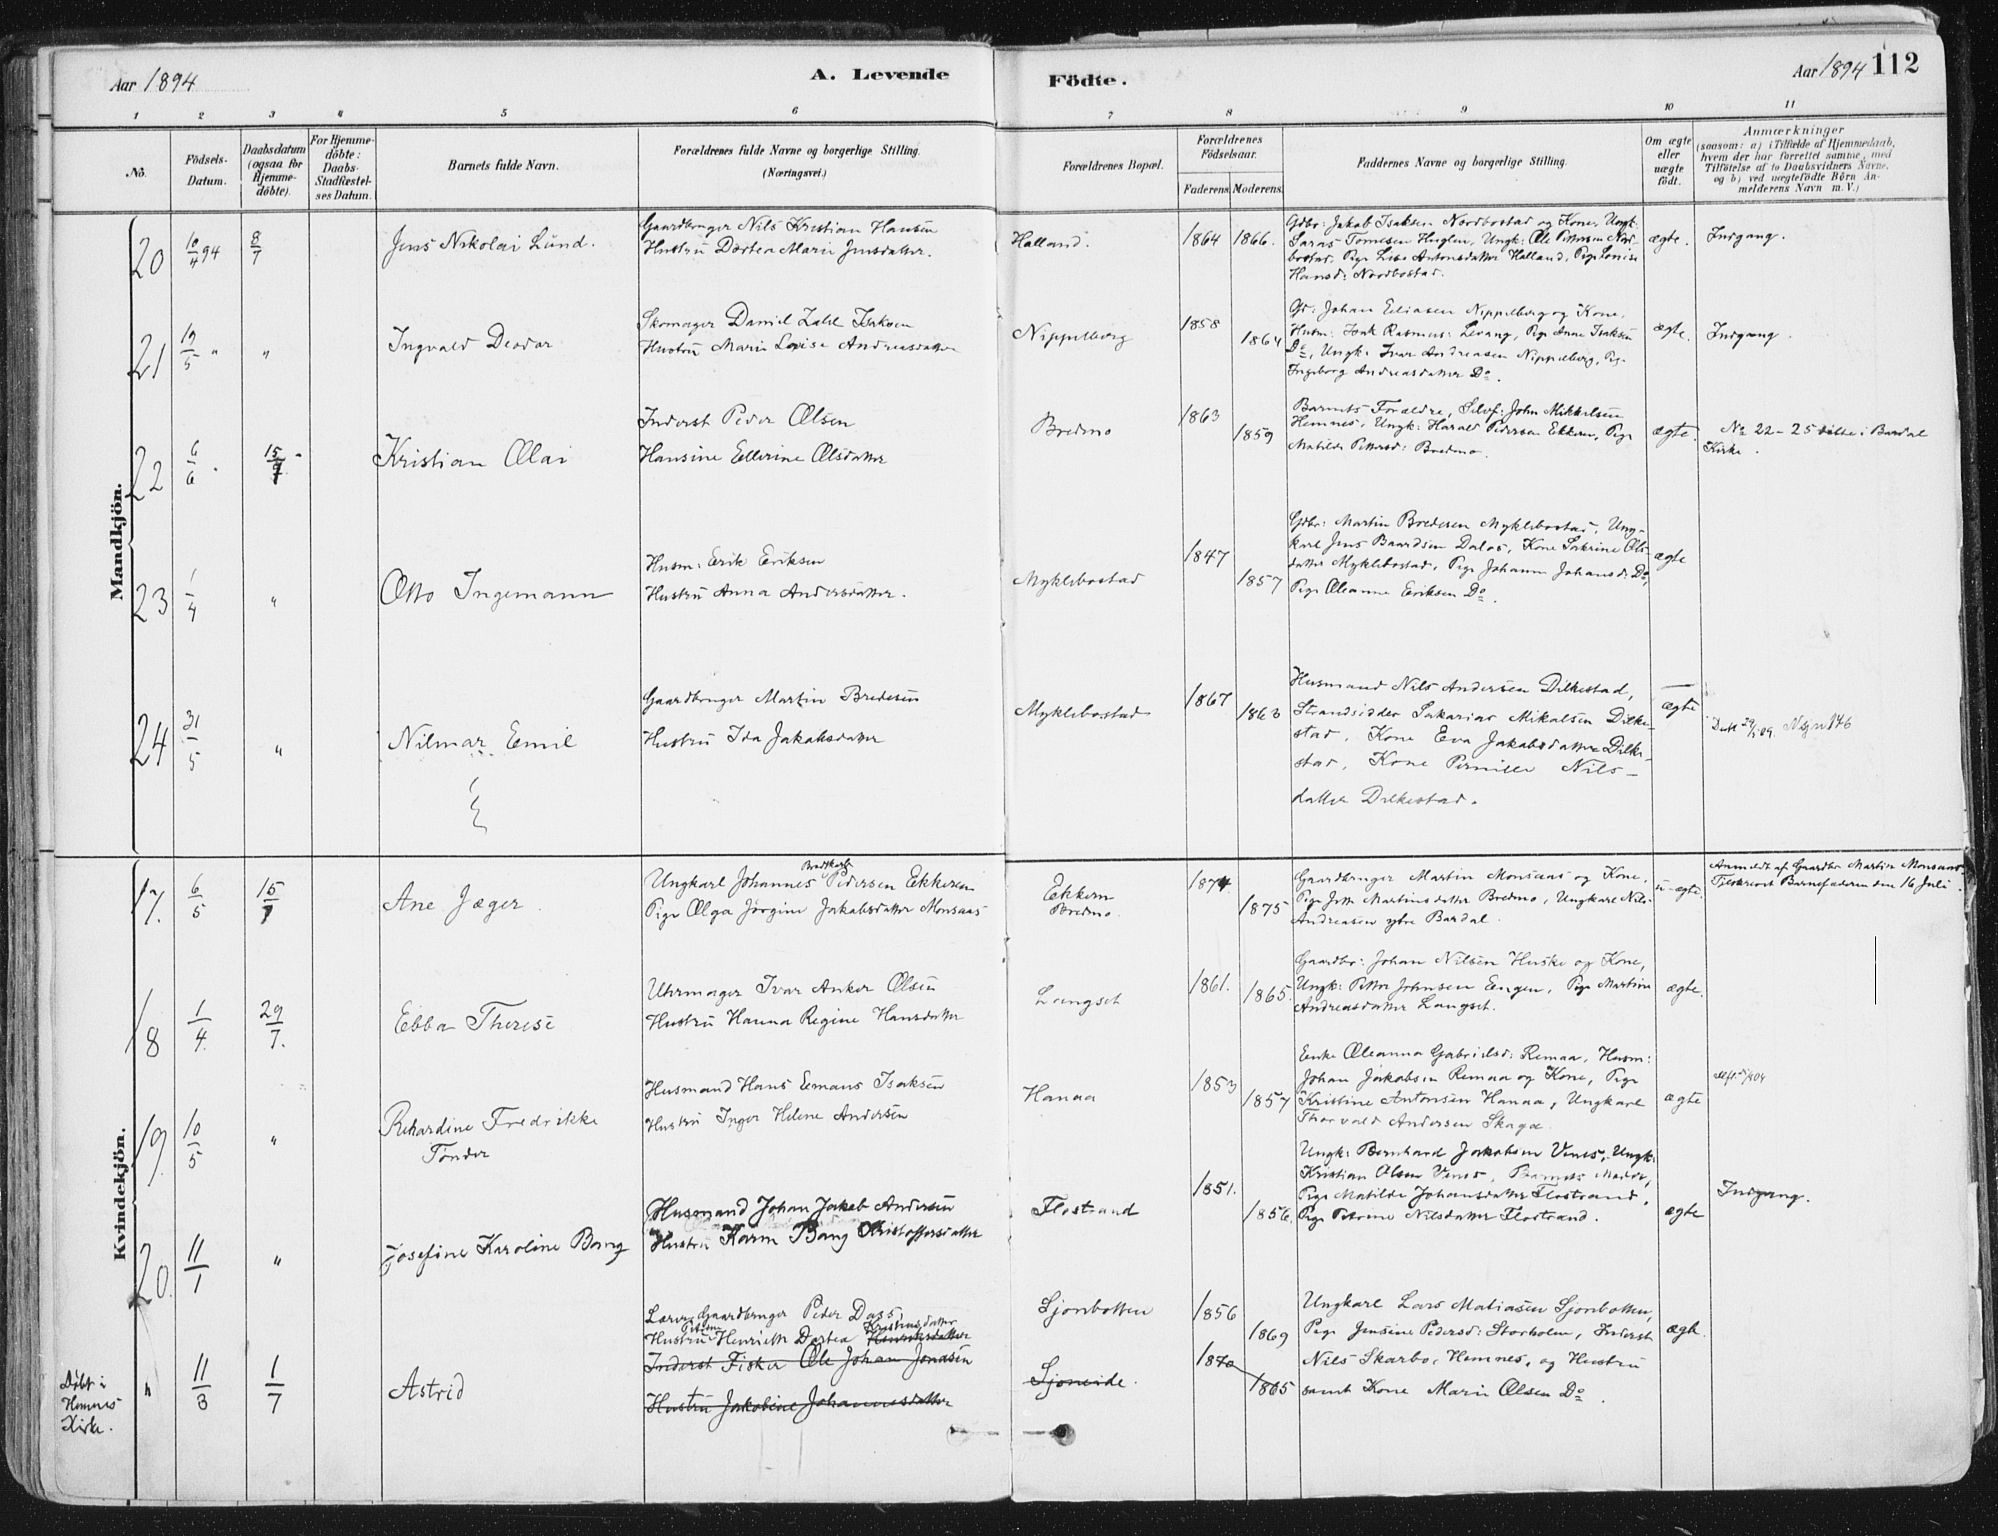 Aar 1894
A. Levende
Födte.
Aar 1894 112
1 2 3 4 5 6 7 8 9 10 11
No.
Födsels-
Datum.
Daabsdatum
(ogsaa for
Hjemme-
döbte).
For Hjemme-
döbte:
Daabs-
Stadfæstel-
ses Datum.
Barnets fulde Navn.
Forældrenes fulde Navne og borgerlige Stilling.
(Næringsvei.)
Forældrenes Bopæl.
Forældrenes
Födselsaar.
Faderens. Moderens.
Faddernes Navne og borgerlige Stilling.
Om ægte
eller
uægte
født.
Anmærkninger
(saasom: a) i Tilfælde af Hjemmedaab,
hvem der har forrettet samme, med
Tilföielse af to Daabsvidners Navne,
og b) ved uægtefödte Börn An-
melderens Navn m. V.)
Mandkjön.
20 10/4 94 8/7 Jens Nikolai Lund.
Gaardbruger Nils Kristian Hansen
Hustru Dortea Marie Jensdatter.
Halland. 1864 1866.
Gdbr: Jakob Isaksen Nordbostad og Kone, Ungk.
Saras Tomesen Huglen, Ungk: Ole Pettersen Nord-
bostad, Pige Lise Antonsdatter Halland, Pige Lovise
Hansd: Nordbostad.
ægte. Indgang.
21 19/5 " " Ingvald Deodor
Skomager Daniel Zakel Isaksen
Hustru Marie Lovise Andreasdatter
Nippelberg 1858 1864
Gt: Johan Eliasen Nippelberg og Kone,
Husm: Isak Rasmus: Levang, Pige Anne Isaksen
Do, Ungk: Ivar Andreasen Nippelberg, Pig.
Ingeborg Andreasdatter Do.
ægte. Indgang.
22 6/6 " 15/7 " Kristian Olai
Inderst Peder Olsen
Hansine Ellerine Olsdatter
Bredmo 1863 1859
Barnets Forældre, Selvf: John Mikkelsen
Hemnes, Ungk: Harald Pedersen Ekkern, Pige
Matilde Pettersd: Bredmo.
ægte. No 22 - 25 døbte i Bardal
Kirke.
23 1/4 " Otto Ingemann
Husm: Erik Eriksen
Hustru Anna Andersdatter.
Myklebostad 1847 1857
Gdbr: Martin Bredesen Myklebostad, Ung-
karl Jens Baardsen Dalos, Kone Sakrine Ols-
datter Myklebostad, Pige Johanna Johansd: Do,
Pige Oleanne Eriksen Do.
ægte
24 31/5 " Nilmar Emil
Gaardbruger Martin Bredesen
Hustru Ida Jakobsdatter
Myklebostad 1867 1863
Husmand Nils Andersen Dilkestad,
Strandsidder Sakarias Mikalsen Dilke-
stad, Kone Eva Jakobsdatter Dilke-
stad, Kone Pernille Nils-
datter Dilkestad.
ægte
Kvindekjön.
17. 6/5 15/7 Ane Jæger.
Ungkarl Johannes Pedersen Ekkeren
Pige Olga Jørgine Jakobsdatter Monsaas
Ekkern
Bredmo.
1874 1875
Gaardbruger Martin Monsaas og Kone,
Pige Jette Martinsdatter Bredmo, Ungkarl Nils
Andreasen ytre Bardal.
u-ægte.
Anmeldt af Gaardbr Martin Monsaas.
Tilskrevet Barnefaderen den 16 Juli.
18 1/4 29/7. Ebba Therese
Uhrmager Ivar Anker Olsen
Hustru Hanna Regine Hansdatter
Langset 1861. 1865.
Gaardbr: Johan Nilsen Huske og Kone,
Ungk: Petter Johnsen Engen, Pige Martine
Andreasdatter Langset.
ægte.
19. 10/5 " Rikardine Fredrikke
Tønder
Husmand Hans Emaus Isaksen
Hustru Inger Helene Andersen
Hanaa 1853 1857
Enke Oleanna Gabrielsd: Remaa, Husm:
Johan Jakobsen Remaa og Kone, Pige
Kristine Antonsen Hanaa, Ungkarl
Thorvald Andersen Skaga.
ægte
20. 11/1 " Josefine Karoline Bang
Husmand Johan Jakob Andersen
Hustru Karen Bang Kristoffersdatter
Flostrand 1851. 1856.
Ungk: Bernhard Jakobsen Vines, Ungk:
Kristian Olsen Vines, Barnets Moder,
Pige Matilde Johansdatter Flostrand,
Pige Petrine Nilsdatter Flostrand.
ægte Indgang.
Døbt i
Hemnes
Kirke.
" 11/3 1/7 Astrid
Lærer Gaardbruger Peder Dass
Petrine Kristinsdatter
Hustru Henriette Dortea Henriksdatter
Inderst Fisker Ole Johan Jonasen
Hustru Jakobine Johannesdatter
Sjonbotten 1856 1869
Sjoneide. 1870 1865
Ungkarl Lars Matiasen Sjonbotten,
Pige Jensine Pedersd: Storholm, Inderst
Nils Skarbo, Hemnes, og Hustru
samt Kone Marie Olsen Do.
ægte.